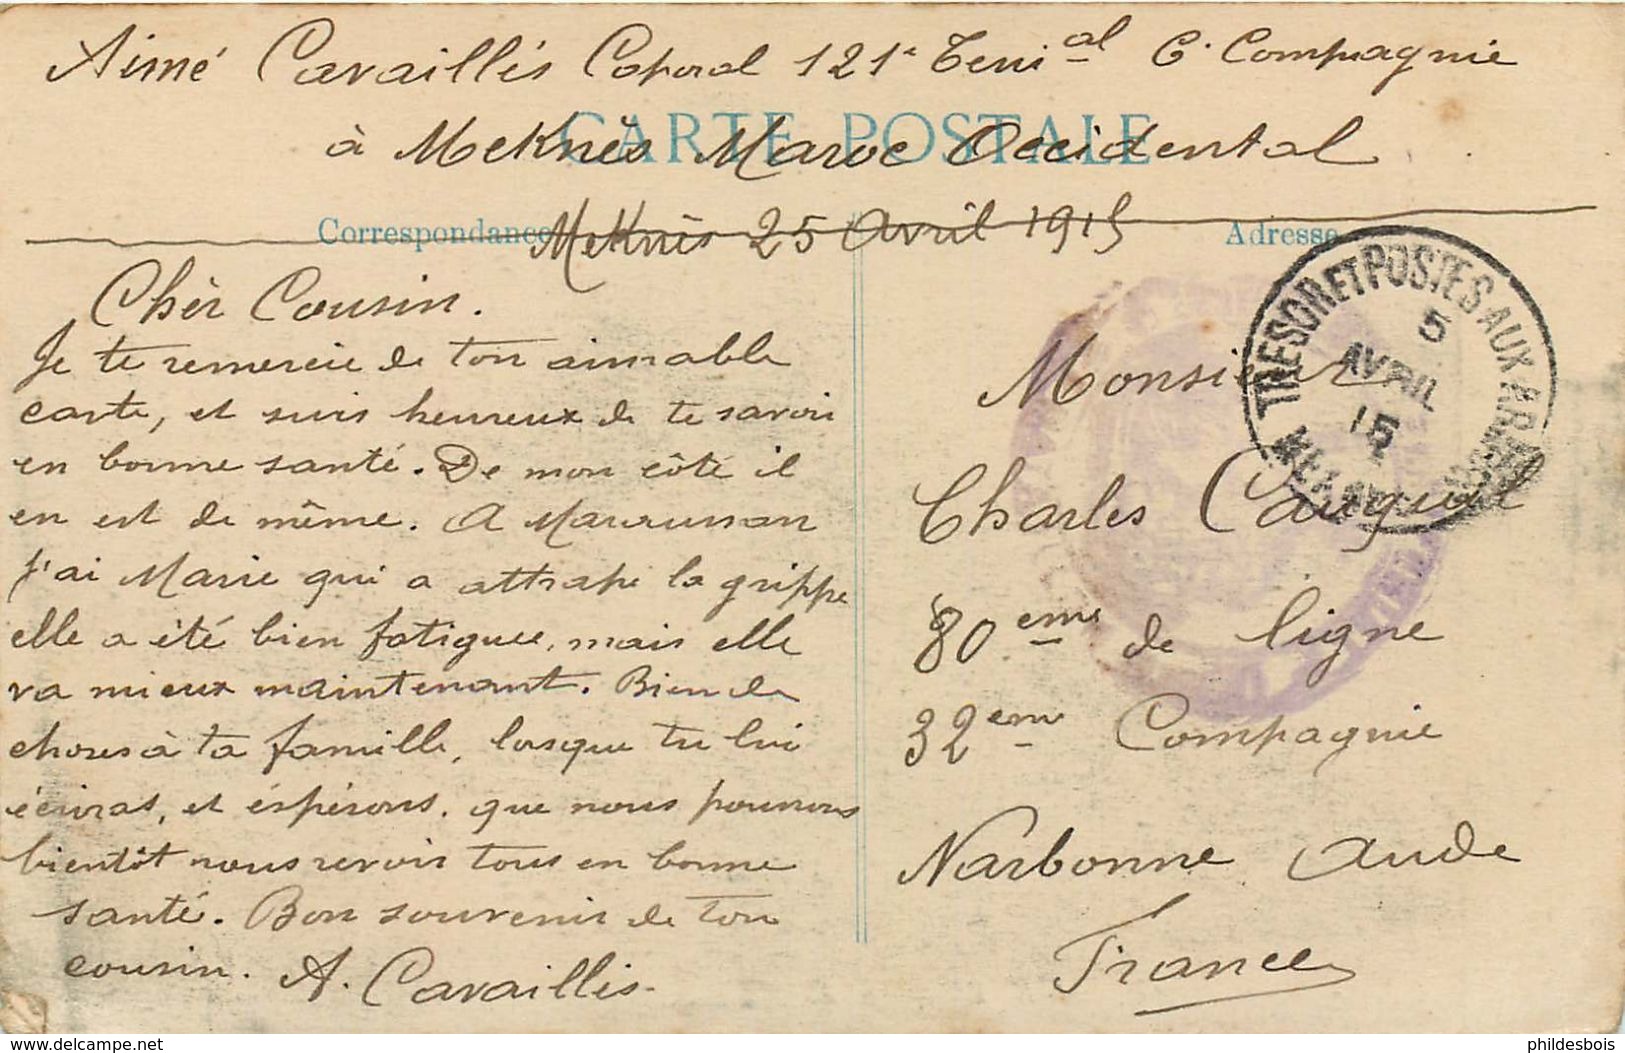 Aimé Cavaillés Caporal 121e Terri al C. Compagnie
à Meknès Maroc Occidental
CARTE POSTALE
Correspondance
Meknès 25 Avril 1915
Adresse
Chèr Cousin.
Je te remercie de ton aimable
carte, et suis heureux de te savoir
en bonne santé. De mon côté il
en est de même. A Maurussan
j'ai Marie qui a attrapé la grippe
elle a été bien fatiguée, mais elle
va mieux maintenant. Bien de
choses à ta famille, lorsque tu lui
écriras, et éspérons, que nous pourrons
bientôt nous revoir tous en bonne
santé. Bon souvenir de ton
cousin. A. Cavaillés
TRESOR ET POSTES AUX ARMEES
5
AVRIL
15
Monsieur
Charles
80eme de ligne
32eme Compagnie
Narbonne Aude
France
delcampe.net
phildesbois